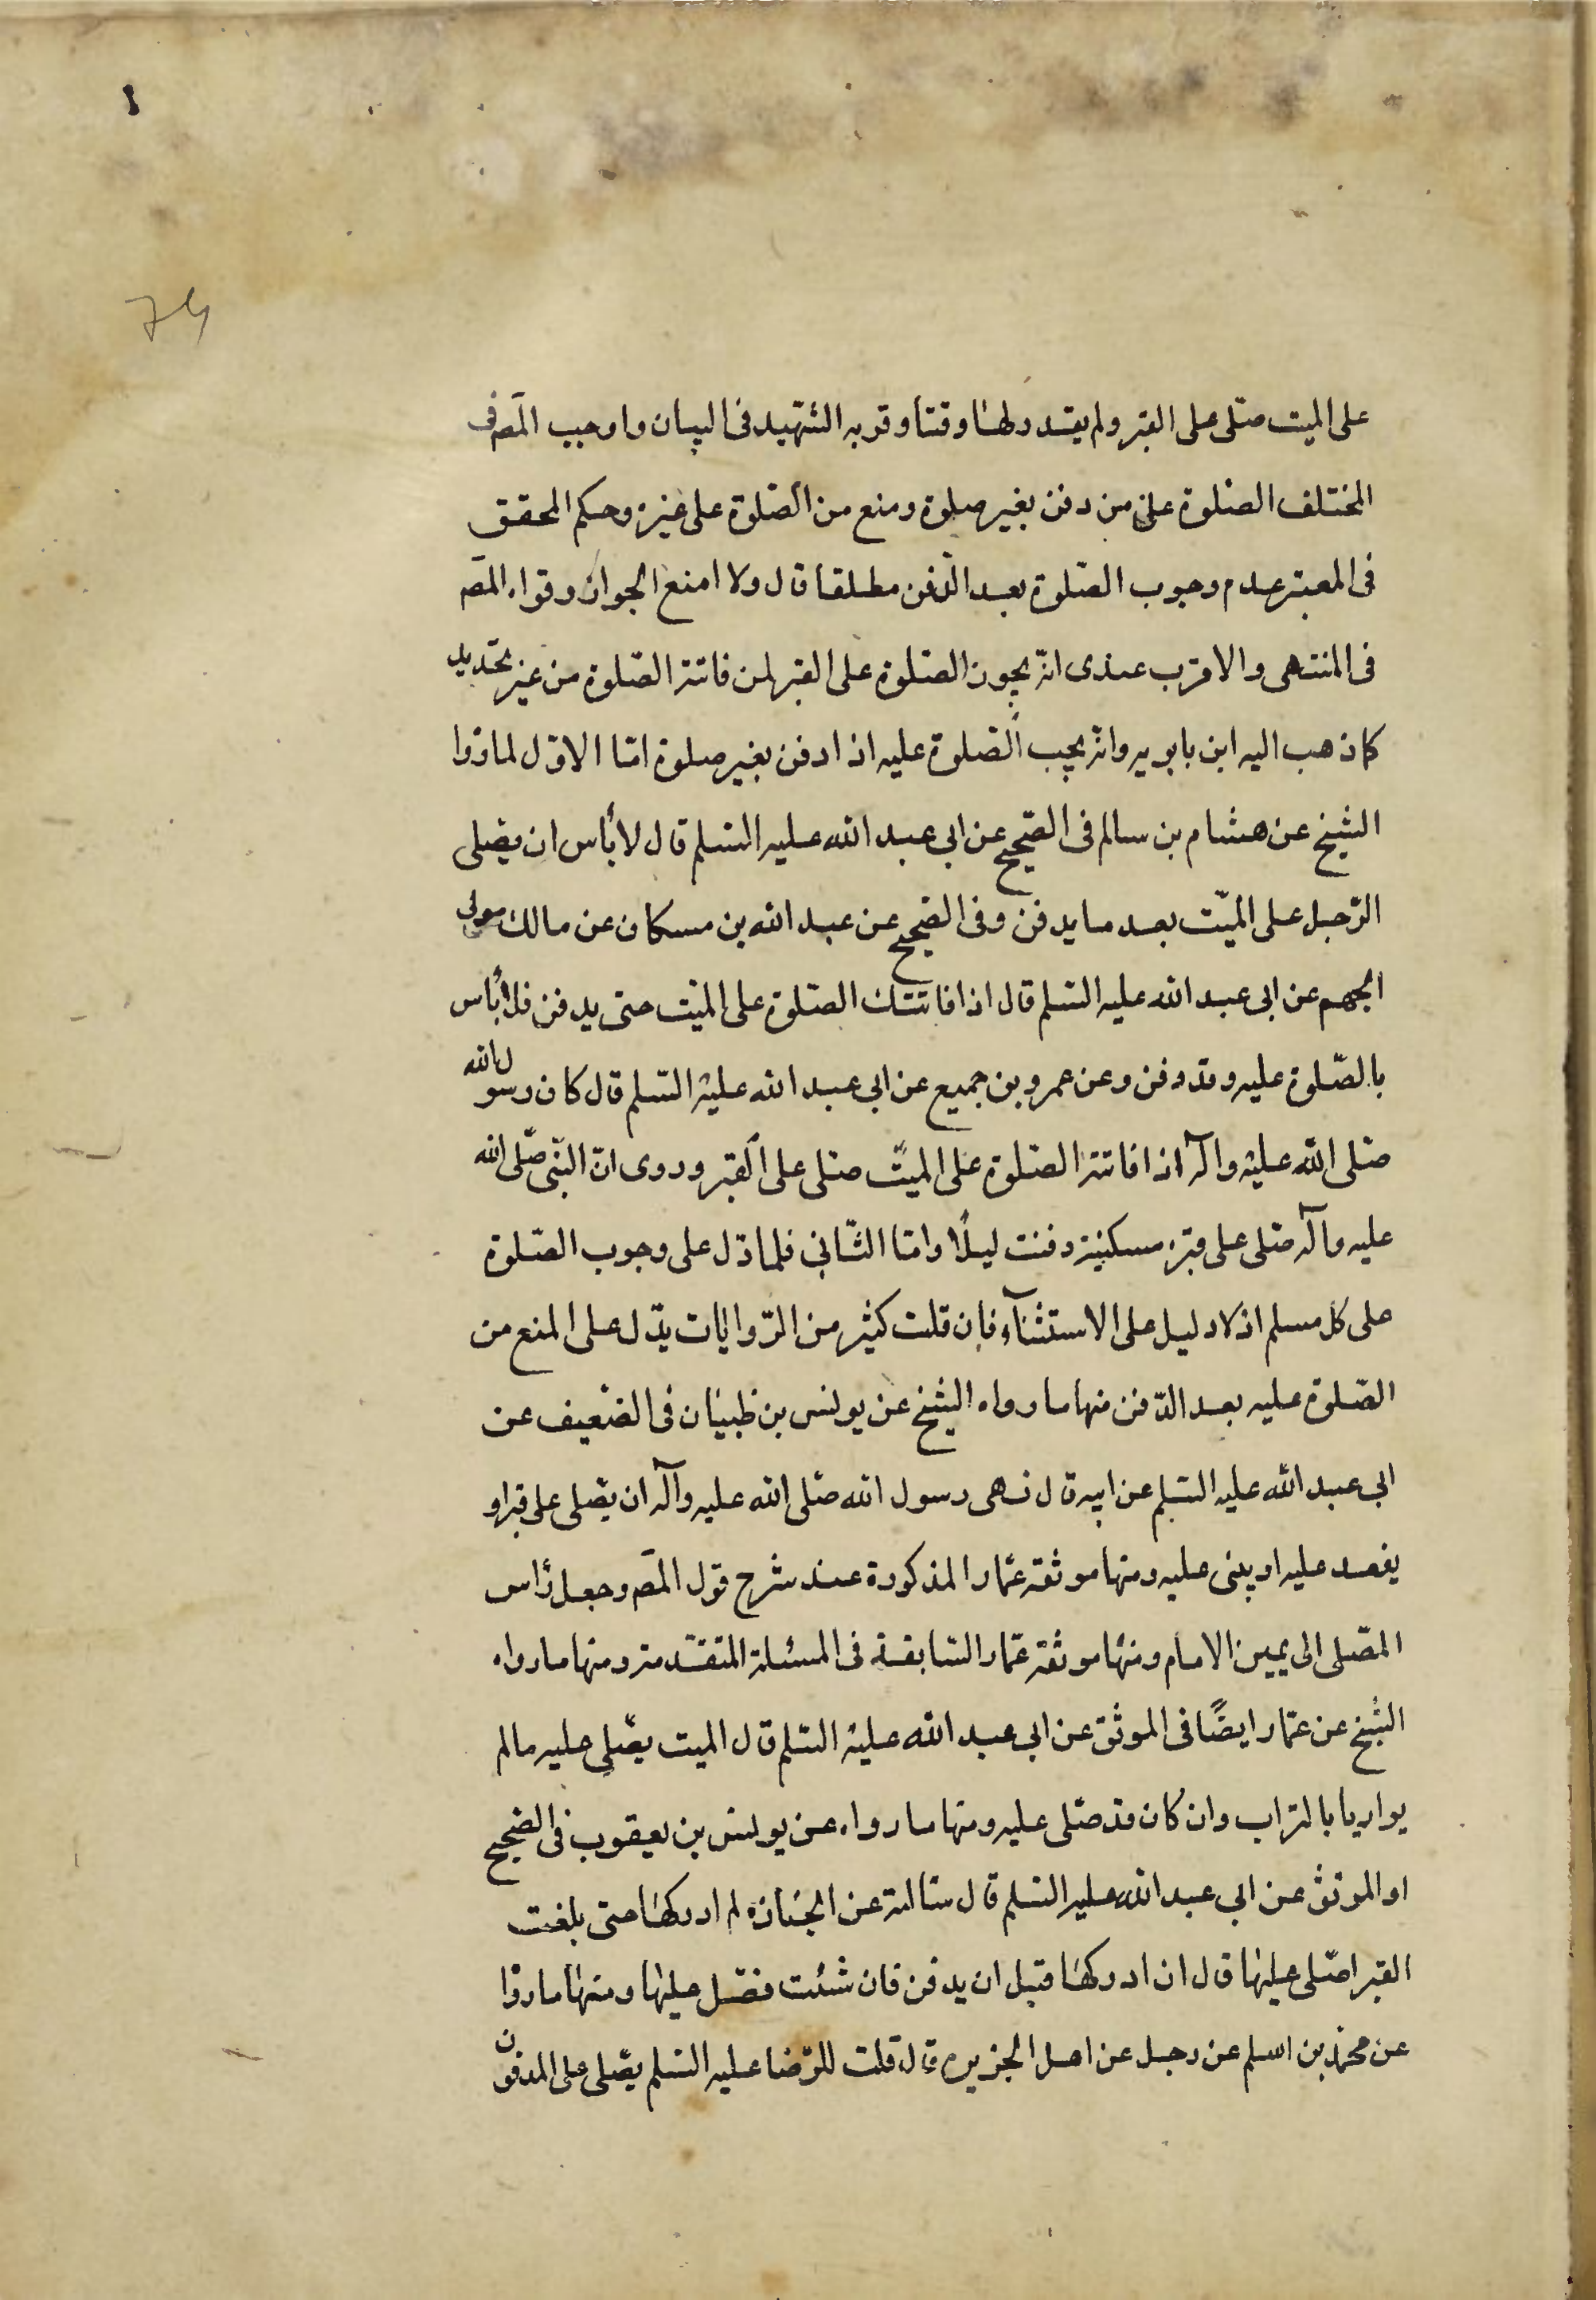 ١
على الميت صلّى على القبر ولم يقدر لها وقتاً وقربه الشّهيد فى البيان واوجب المصّ فى
المختلف الصّلوة على من دفن بغير صلوة ومنع من الصّلوة على غيره وحكم المحقق
فى المعتبر عدم وجوب الصّلوة بعد الدّفن مطلقا قال ولا امنع الجواز وقواه المصّ
فى المنتهى والاقرب عندى انّه يجوز الصّلوة على القبر لمن فاتته الصّلوة من غير تحديد
كما ذهب اليه ابن بابويه وانّه يجب الصّلوة عليه اذا دفن بغير صلوة امّا الاوّل لما رواه
الشيخ عن هشام بن سالم فى الصّحيح عن ابى عبد الله عليه السّلم قال لا بأس ان يصّلى
الرّجل على الميّت بعد ما يدفن وفى الصّحيح عن عبد الله بن مسكان عن مالك مولى
الجهم عن ابى عبد الله عليه السّلم قال اذا فاتتك الصّلوة على الميّت حتى يدفن فلا بأس
بالصّلوة عليه وقد دفن وعن عمرو بن جميع عن ابى عبد الله عليه السّلم قال كان رسول الله
صلّى الله عليه وآله اذا فاتته الصّلوة على الميّت صلى على القبر وروى انّ النّبى صلّى الله
عليه وآله صلّى على قبر مسكينة دفنت ليلًا وامّا الثّانى فلما دّل على وجوب الصّلوة
على كل مسلم اذ لا دليل على الاستثنآء فان قلت كثير من الرّوايات يدّل على المنع من
الصّلوة عليه بعد الدّفن منها ما رواه الشيخ عن يونس بن ظبيان فى الضّعيف عن
ابى عبد الله عليه السّلم عن ابيه قال نهى رسول الله صلّى الله عليه وآله ان يصّلى على قبر او
يقعد عليه او يبنى عليه ومنها موثقة عمّار المذكورة عند شرح قول المصّ وجعل رأس
المصّلى الى يمين الامام ومنها موثقة عمّار السّابقة فى المسئلة المتقدّمة ومنها ما رواه
الشيخ عن عمّار ايضًا فى الموثق عن ابى عبد الله عليه السّلم قال الميت يصّلى عليه ما لم
يواريا بالتراب وان كان قد صلّى عليه ومنها ما رواه عن يونس بن يعقوب فى الصّحيح
او الموثق عن ابى عبد الله عليه السّلم قال سّالته عن الجنازه لم ادركها حتى بلغت
القبر اصّلى عليها قال ان ادركها قبل ان يدفن فان شئت فصّل عليها ومنها ما رواه
عن محمّد بن اسلم عن رجل عن اهل الجزيره قال قلت للرّضا عليه السّلم يصّلى على المدفون